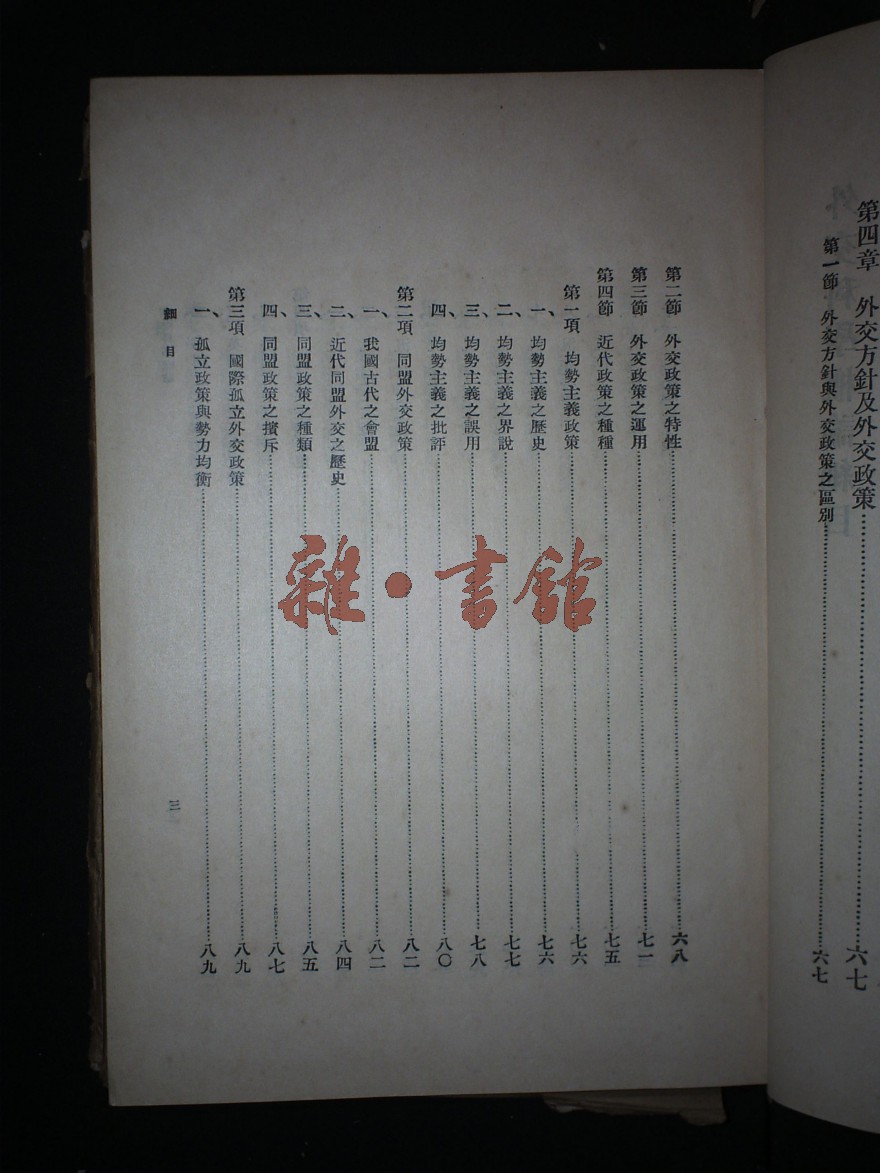 第四章　外交方針及外交政策……六七
第一節　外交方針與外交政策之區別……六七
第二節　外交政策之特性……六八
第三節　外交政策之運用……七一
第四節　近代政策之種種……七五
第一項　均勢主義政策……七六
一、均勢主義之歷史……七六
二、均勢主義之界說……七七
三、均勢主義之誤用……七八
四、均勢主義之批評……八〇
第二項　同盟外交政策……八二
一、我國古代之會盟……八二
二、近代同盟外交之歷史……八四
三、同盟政策之種類……八五
四、同盟政策之擯斥……八七
第三項　國際孤立外交政策……八九
一、孤立政策與勢力均衡……八九
細目　三
雜·書館